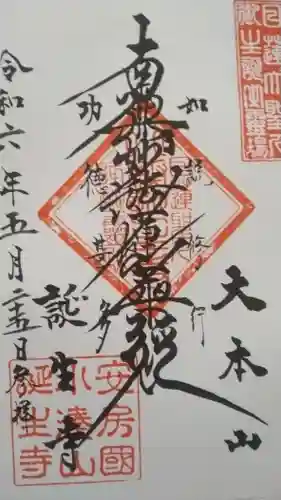 日蓮大聖人
御生誕霊場
大本山
如説修行
南無妙法蓮華経
功徳甚多
誕生寺
令和六年五月二十五日参拝
安房國
小湊山
誕生寺